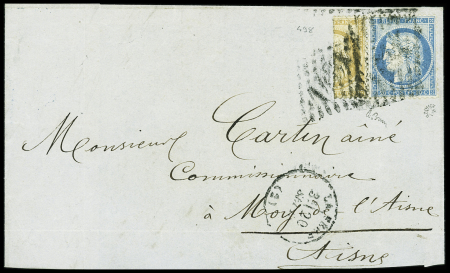 498
Monsieur Carlin aîné
Commissionnaire
à Moÿ de l'Aisne
Aisne
20